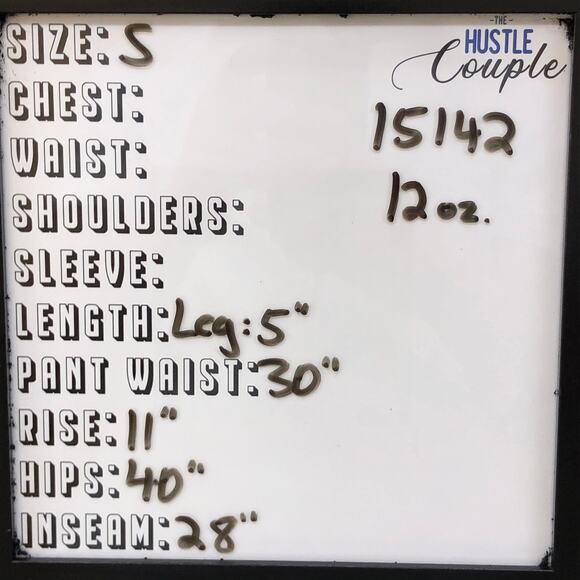 SIZE: S
CHEST:
WAIST:
SHOULDERS:
SLEEVE:
LENGTH: Leg: 5"
PANT WAIST: 30"
RISE: 11"
HIPS: 40"
INSEAM: 28"
-THE-
HUSTLE
Couple
15142
12 oz.